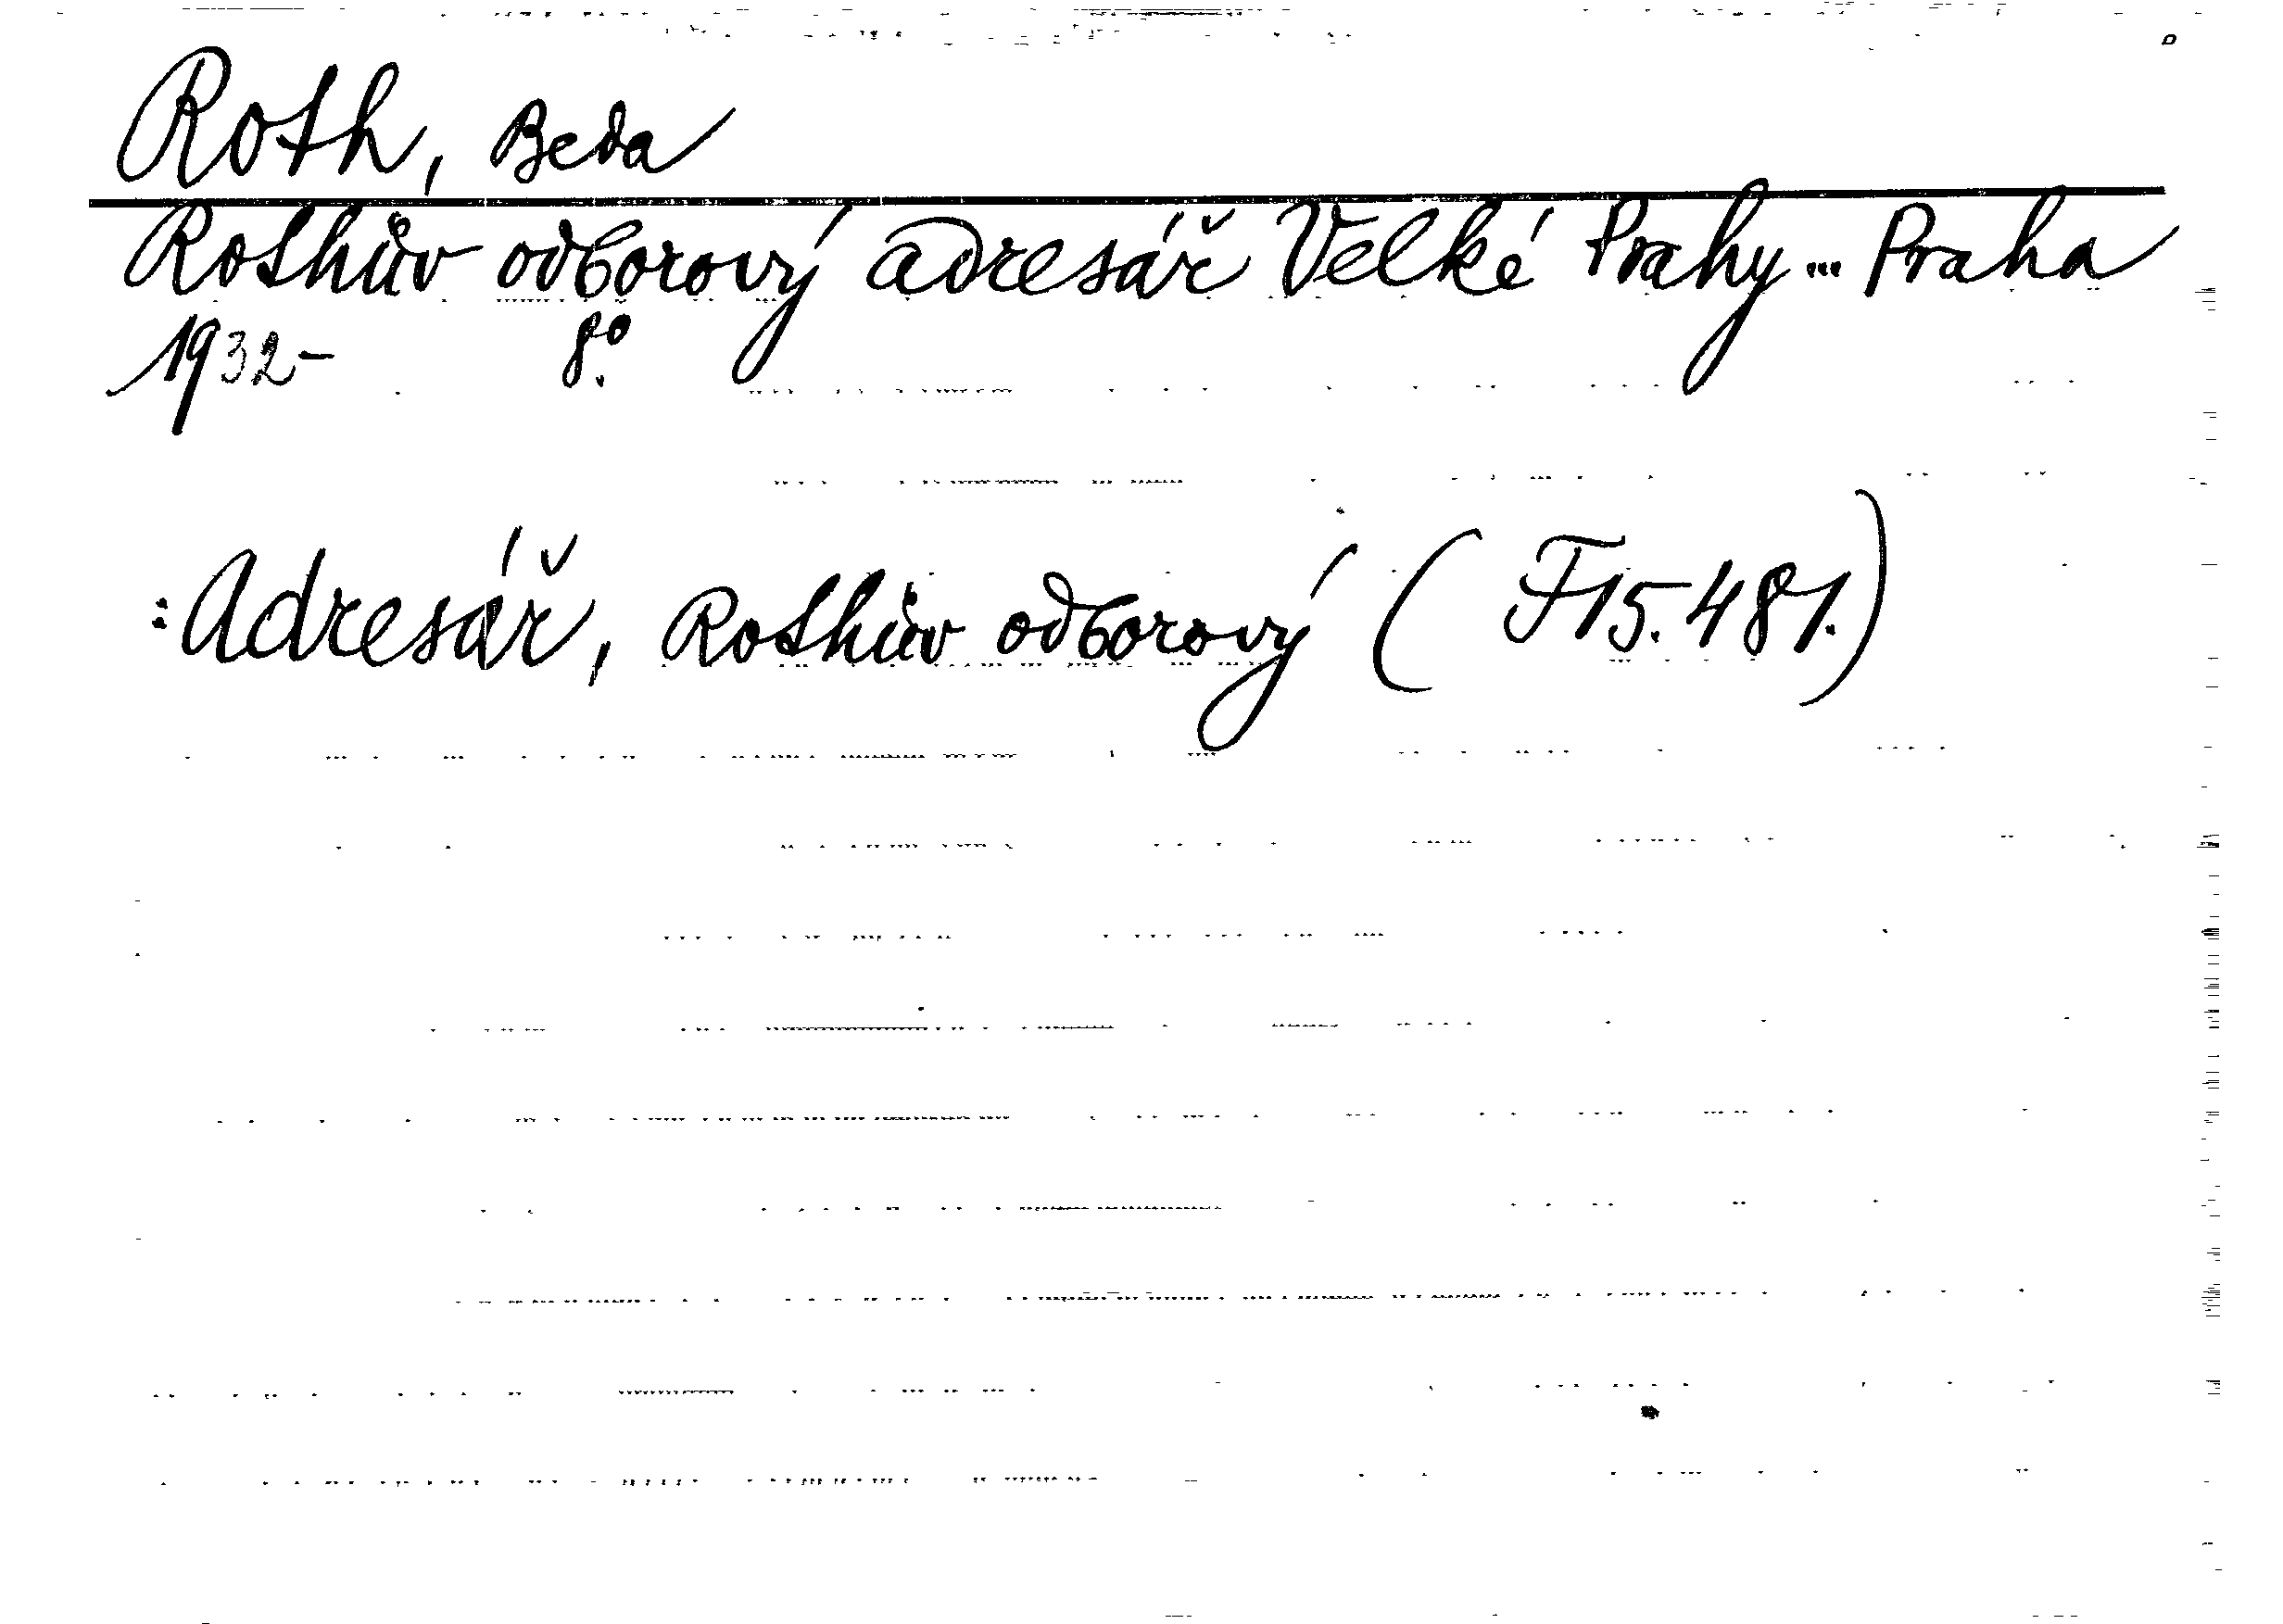 Roth, Beda
Rothův odborový adresář Velké Prahy... Praha
1932- 8°.
: Adresář, Rothův odborový ( F 15.481.)